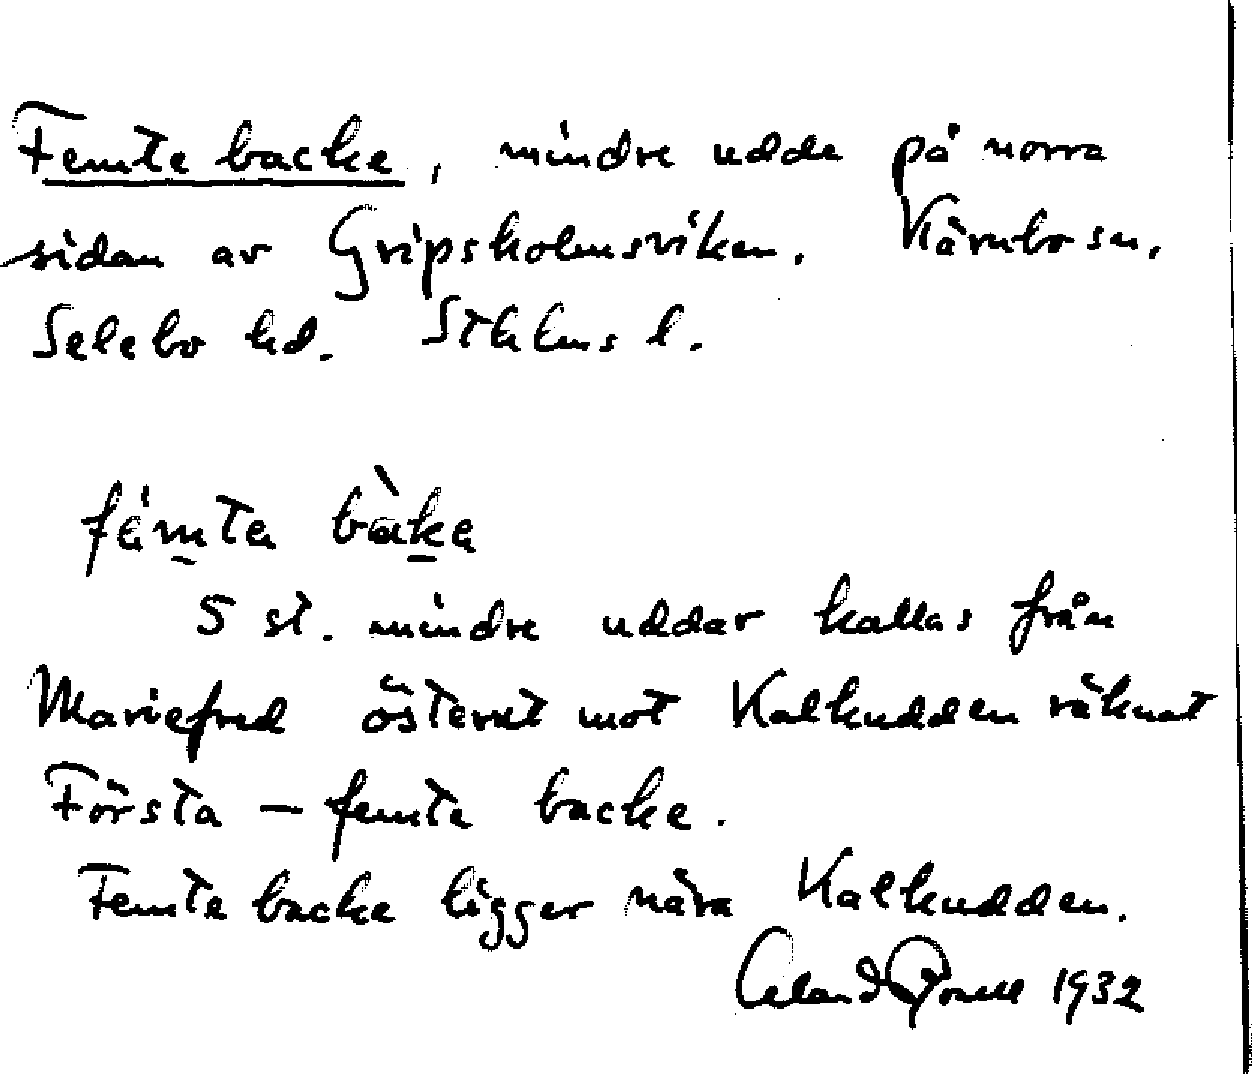 Femte backe, mindre udde på norra
sidan av Gripsholmsviken. Kärnbo sn.
Selebo hd. Sthlms l.
fämta bàka
5 st. mindre uddar kallas från
Mariefred österut mot Kalkudden räknat
Första – femte backe.
Femte backe ligger nära Kalkudden.
1932